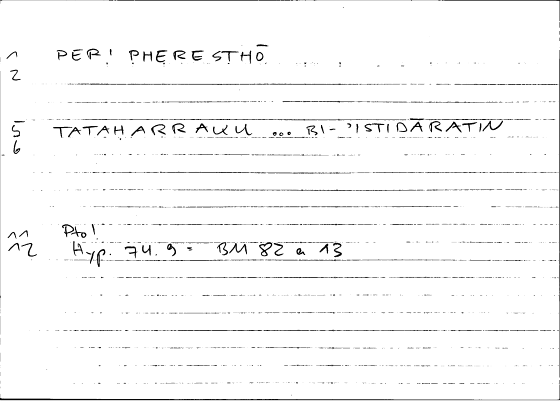 1 PERI PHERESTHŌ
2
5 TATAHARRAKU ... BI-'ISTIDĀRATIN
6
11 Ptol
12 Hyp. 74.9 = BM 82 a 13